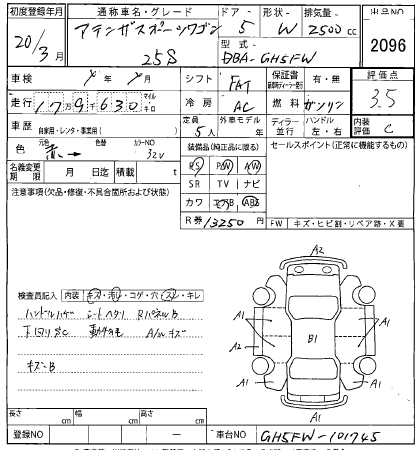 初度登録年月 通称車名・グレード ドア 形状 排気量 出品NO
20/3月 アテンザスポーツワゴン 5 W 2500cc 2096
25S 型式 DBA-GH5FW
車検 年 月 シフト FAT 保証書 有・無 評価点
走行 17万9千630 マイル キロ 冷房 AC 燃料 ガソリン 3.5
車歴 自家用・レンタ・事業用( ) 定員 5人 外車モデル 年 ディーラー 並行 ハンドル 左・右 内装評価 C
色 元色 赤→ 色替 カラーNO 32V 装備品(純正品に限る) セールスポイント(正常に機能するもの)
名義変更期限 月 日迄 積載 t PS PW AW
注意事項(欠品・修復・不具合箇所および状態) SR TV ナビ
カワ エアB ABS
R券 13250円 FW キズ・ヒビ割・リペア跡・X要
検査員記入 内装 キズ・汚れ・コゲ・穴・スレ・キレ
ハンドルハゲ シートヘタリ RパネルB
A/Wキズ
キズ・B
A2
A1 A1
A1 A1
A2 B1 A2
A1 A1
A1
長さ cm 幅 cm 高さ cm
登録NO ― 車台NO GH5FW-101745